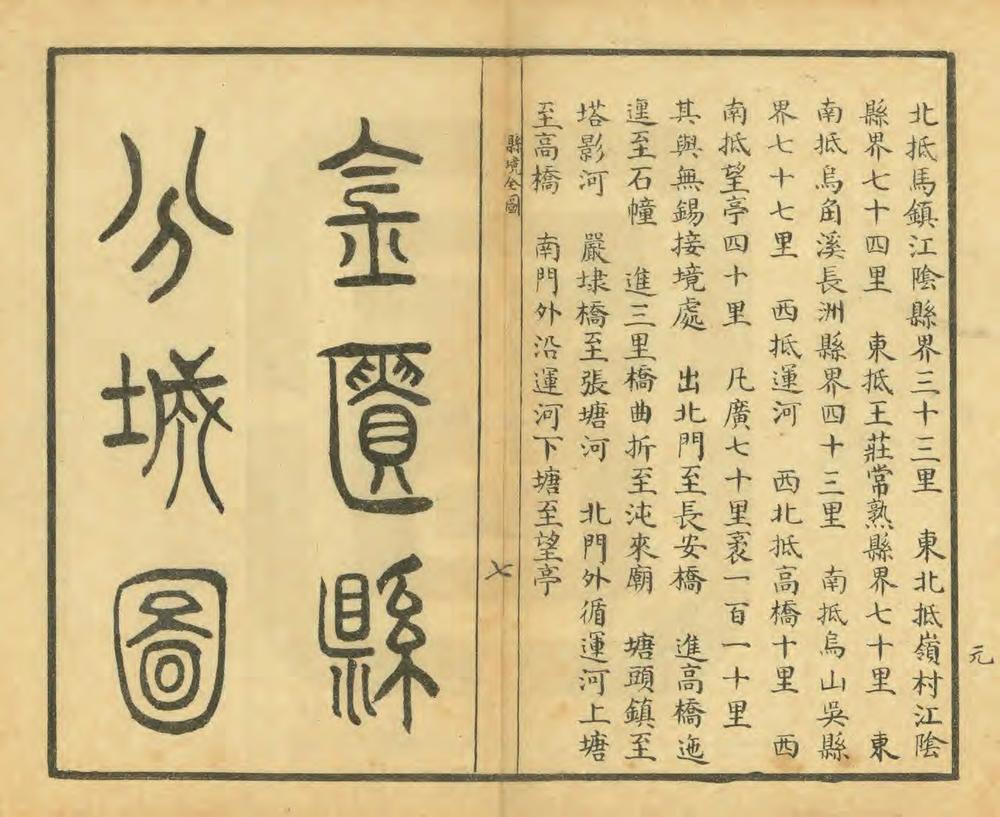 北抵馬鎮江陰縣界三十三里　東北抵嶺村江陰
縣界七十四里　東抵王莊常熟縣界七十里　東
南抵烏角溪長洲縣界四十三里　南抵烏山吳縣
界七十七里　西抵運河　西北抵高橋十里　西
南抵望亭四十里　凡廣七十里袤一百一十里
其與無錫接境處　出北門至長安橋　進高橋迤
邐至石幢　進三里橋曲折至沌來廟　塘頭鎮至
塔影河　嚴埭橋至張塘河　北門外循運河上塘
至高橋　南門外沿運河下塘至望亭
縣境全圖
七
金匱縣
分城圖
元